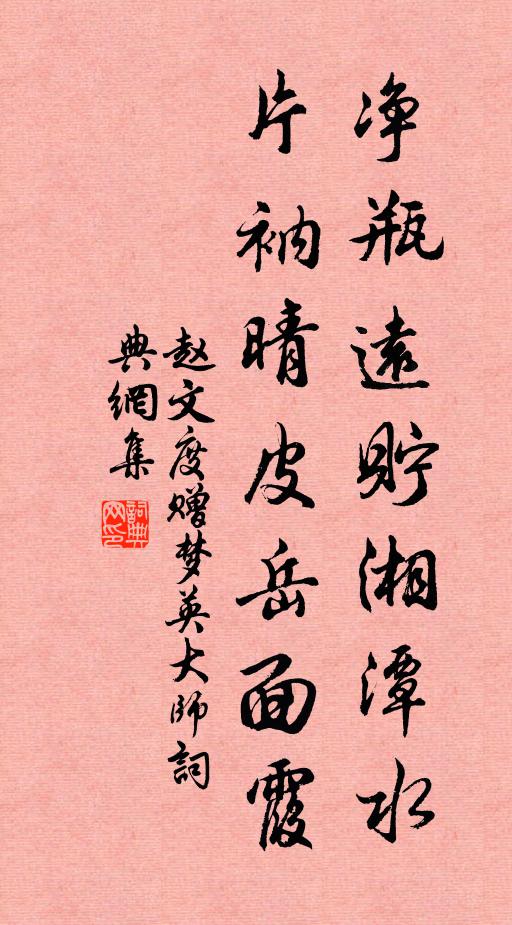 净瓶遠貯湘潭水
片衲晴皮岳面霞
赵文度赠梦英大师詞
典網集
詞典网印